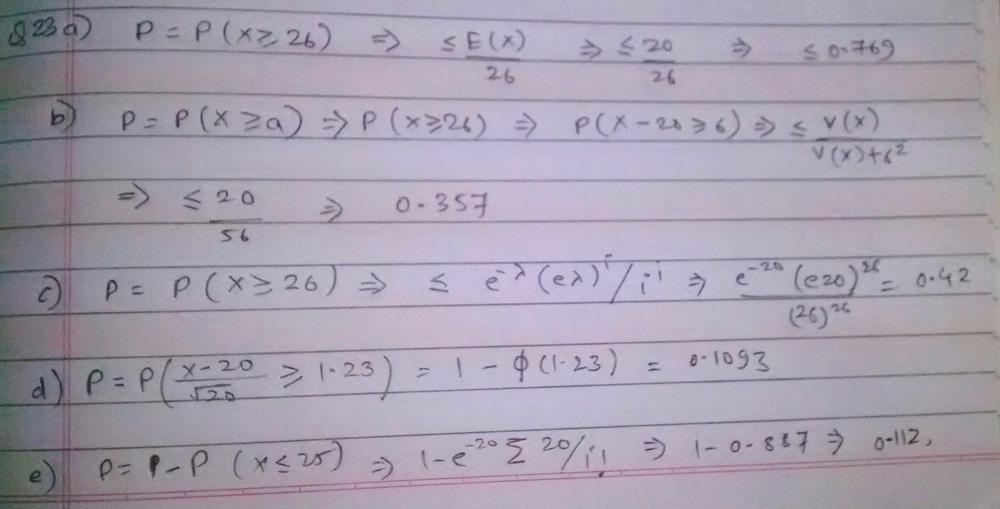 Q23 a) P = P(X ≥ 26) ⇒ ≤ E(X)/26 ⇒ ≤ 20/26 ⇒ ≤ 0.769
b) P = P(X ≥ a) ⇒ P(X ≥ 26) ⇒ P(X - 20 ≥ 6) ⇒ ≤ V(X)/V(X)+6²
⇒ ≤ 20/56 ⇒ 0.357
c) P = P(X ≥ 26) ⇒ ≤ e^-λ (eλ)^i / i^i ⇒ e^-20 (e20)^26 / (26)^26 = 0.42
d) P = P(X-20/√20 ≥ 1.23) = 1 - φ(1.23) = 0.1093
e) P = 1 - P (X ≤ 25) ⇒ 1 - e^-20 Σ 20/i! ⇒ 1 - 0.887 ⇒ 0.112,